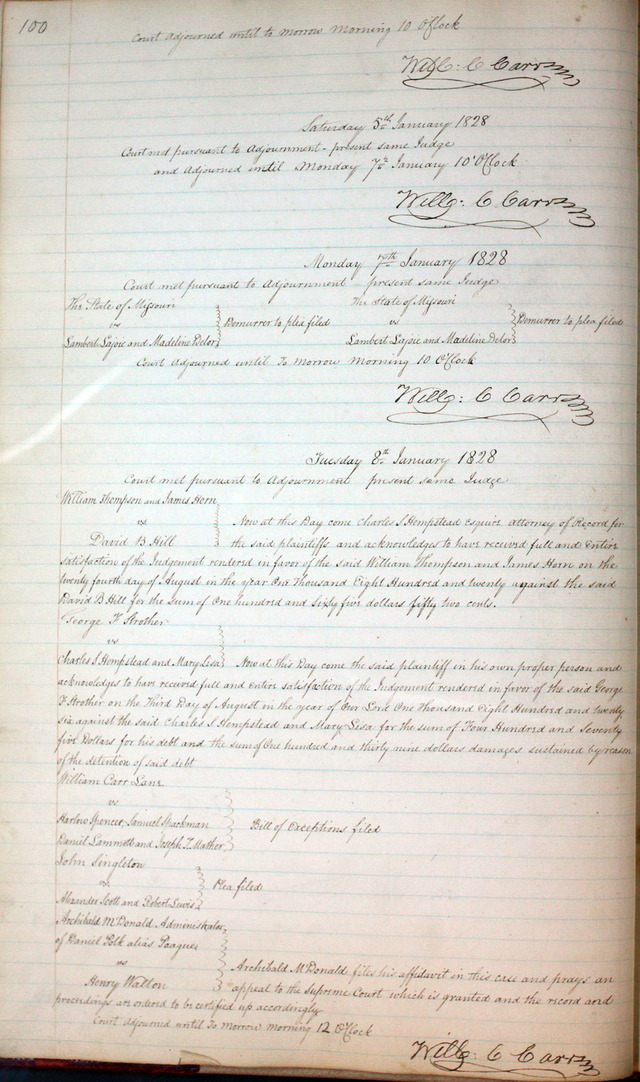 100
Court Adjourned until to Morrow Morning 10 OClock
Will: C Carr
Saturday 5th January 1828
Court met pursuant to Adjournment - present same Judge
and Adjourned until Monday 7th January 10 OClock
Will: C Carr
Monday 7th January 1828
Court met pursuant to Adjournment present same Judge
The State of Missouri
vs } Demurrer to plea filed
Lambert Lajoie and Madeline Delor
The State of Missouri
vs } Demurrer to plea filed
Lambert Lajoie and Madeline Delor
Court Adjourned until To Morrow Morning 10 OClock
Will: C Carr
Tuesday 8th January 1828
Court met pursuant to Adjournment present same Judge
William Thompson and James Horn
vs } Now at this Day come Charles S Hempstead Esquire Attorney of Record for
David B Hill the said plaintiffs and acknowledges to have received full and entire
satisfaction of the Judgement rendered in favor of the said William Thompson and James Horn on the
twenty fourth day of August in the year One Thousand Eight Hundred and twenty against the said
David B Hill for the sum of One hundred and Sixty five dollars fifty two cents.
George F Strother
vs
Charles S Hempstead and Mary Lisa } Now at this Day come the said plaintiff in his own proper person and
acknowledges to have received full and entire satisfaction of the Judgement rendered in favor of the said George
F Strother on the Third Day of August in the year of Our Lord One Thousand Eight Hundred and twenty
six against the said Charles S Hempstead and Mary Lisa for the sum of Four Hundred and Seventy
five Dollars for his debt and the sum of One hundred and thirty nine dollars damages sustained by reason
of the detention of said debt
William Carr Lane
vs
Harlow Spencer, Samuel Shackman } Bill of Exceptions filed
Daniel Lammott and Joseph T. Mather
John Singleton
vs } Plea filed
Alexander Scott and Robert Lewis
Archibald McDonald Administrator
of Daniel Polk alias
vs } Archibald McDonald files his affidavit in this case and prays an
Henry Walton appeal to the Supreme Court which is granted and the record and
proceedings are ordered to be certified up accordingly
Court Adjourned until To Morrow morning 12 OClock
Will: C Carr